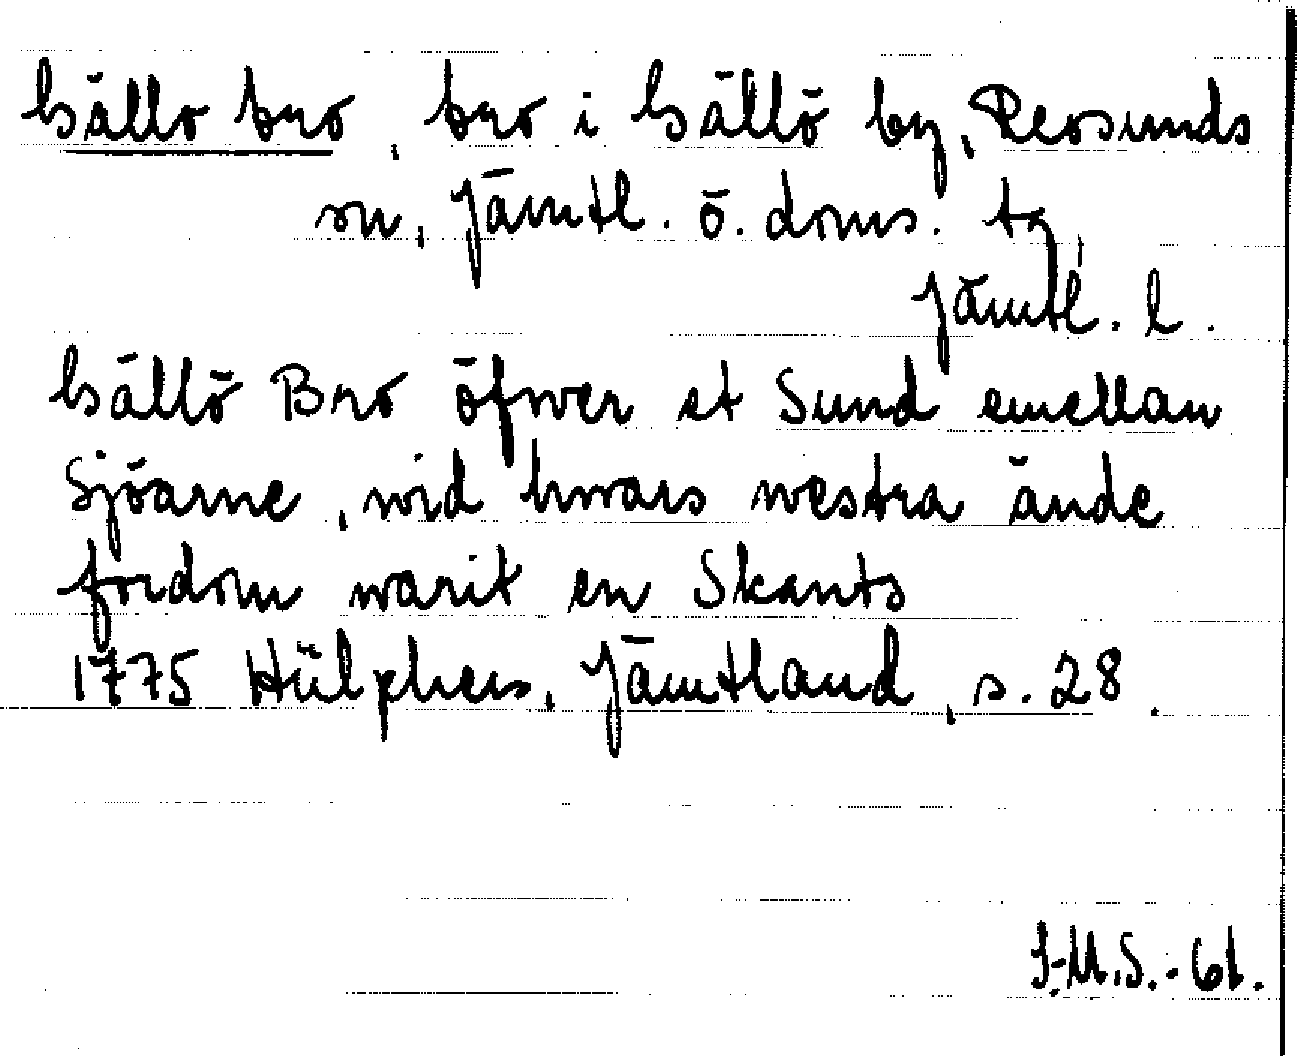 Gällö bro, bro i Gällö by, Revsunds
sn, Jämtl. ö. doms. tg
Jämtl. l.
Gällö Bro öfwer et Sund emellan
Sjöarne, wid hwars westra ände
fordom warit en Skants
1775 Hülphers, Jämtland, s. 28.
I-M.S.-61.